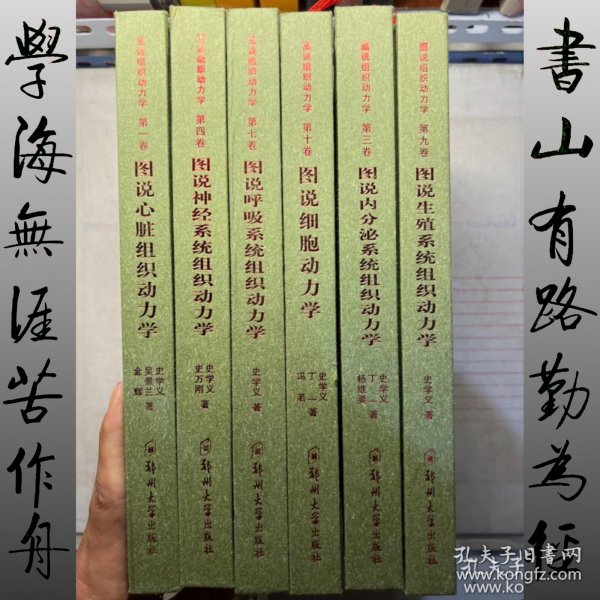 書山有路勤為徑
學海無涯苦作舟
图说组织动力学 第一卷
图说心脏组织动力学
史学义
吴景兰 著
金 辉
郑州大学出版社
图说组织动力学 第四卷
图说神经系统组织动力学
史学义
史万刚 著
郑州大学出版社
图说组织动力学 第七卷
图说呼吸系统组织动力学
史学义 著
郑州大学出版社
图说组织动力学 第十卷
图说细胞动力学
史学义
丁 一 著
冯 若
郑州大学出版社
图说组织动力学 第三卷
图说内分泌系统组织动力学
史学义
丁 一 著
郑州大学出版社
图说组织动力学 第九卷
图说生殖系统组织动力学
史学义 著
郑州大学出版社
孔夫子旧书网
www.kongfz.com